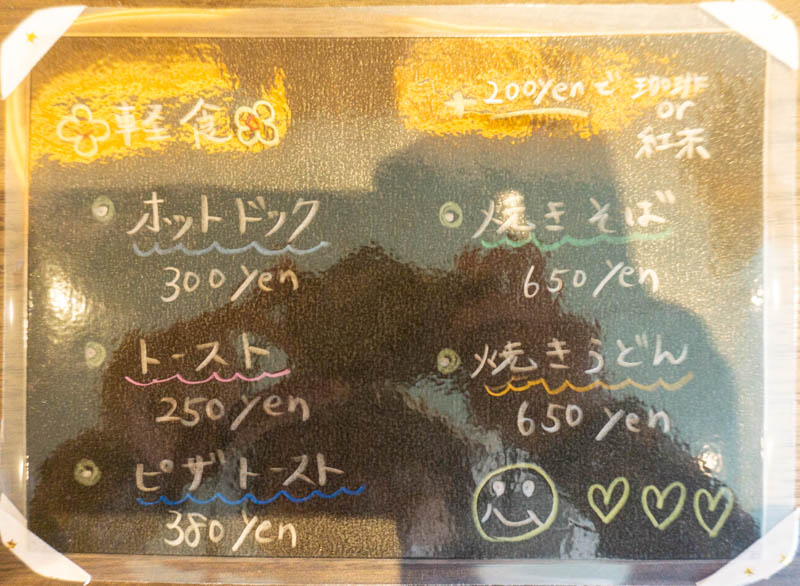 軽食
+200yenで 珈琲
or
紅茶
ホットドック
300yen
トースト
250yen
ピザトースト
380yen
焼きそば
650yen
焼きうどん
650yen